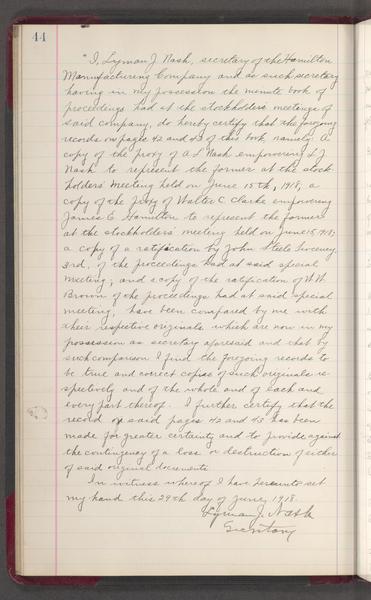 44
"I, Lyman J. Nash, secretary of the Hamilton
Manufacturing Company and as such secretary
having in my possession the minute book of
proceedings had at the stockholders' meetings of
said company, do hereby certify that the foregoing
records on pages 42 and 43 of this book, namely: A
copy of the proxy of A L Nash empowering L J.
Nash to represent the former at the stock-
holders' meeting held on June 15th, 1918, a
copy of the proxy of Walter C. Clarke empowering
James E Hamilton to represent the former
at the stockholders' meeting held on June 15, 1918;
a copy of a ratification by John Steele Sweeney
3rd, of the proceedings had at said special
meeting; and a copy of the ratification of W.W.
Brown of the proceedings had at said special
meeting, have been compared by me with
their respective originals which are now in my
possession as secretary aforesaid and that by
such comparison I find the foregoing records to
be true and correct copies of such originals re-
spectively and of the whole and of each and
every part thereof. I further certify that the
record on said pages 42 and 43 has been
made for greater certainty and to provide against
the contingency of a loss or destruction of either
of said original documents.
In witness whereof I have hereunto set
my hand this 29th day of June, 1918.
Lyman J. Nash
Secretary